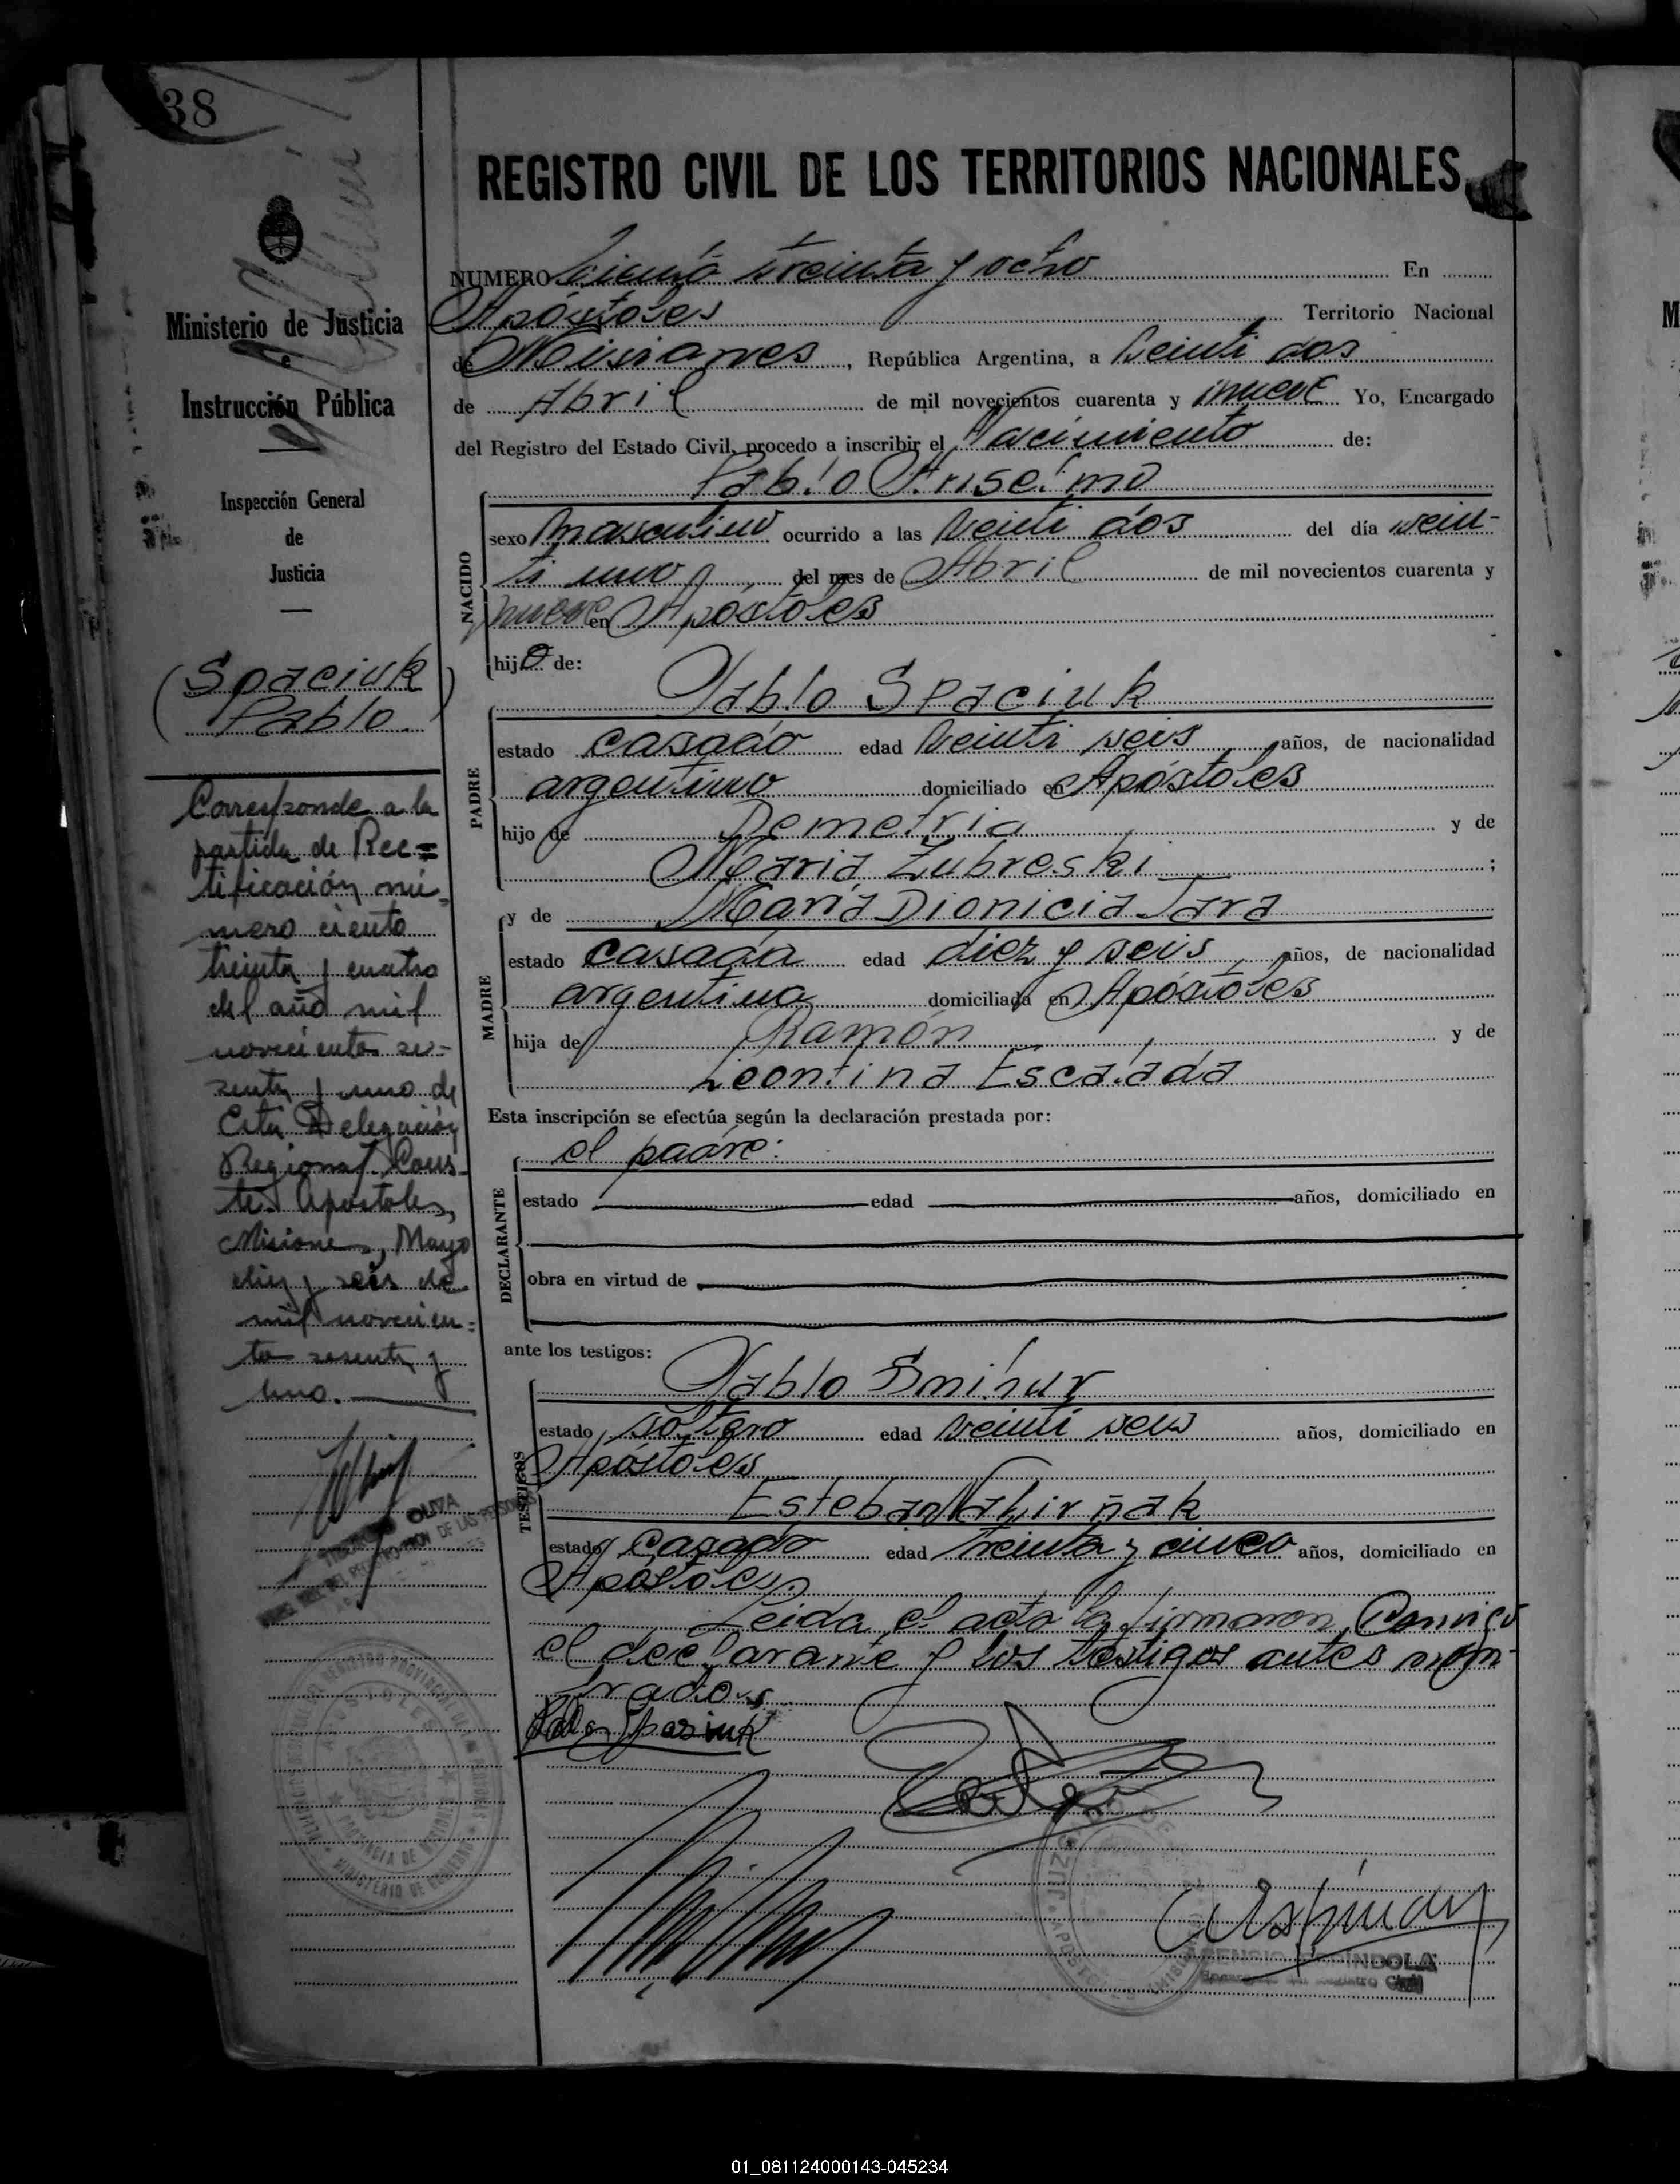 38
REGISTRO CIVIL DE LOS TERRITORIOS NACIONALES
Ministerio de Justicia
e
Instrucción Pública
Inspección General
de
Justicia
(Spaciuk
Pablo.)
Corresponde a la
partida de Rec=
tificación nú-
mero ciento
treinta y cuatro
del año mil
novecientos se-
senta y uno de
Esta Delegación
Regional. Cons-
te. Apóstoles,
Misiones, Mayo
diez y seis de
mil novecien=
to sesenta y
uno.
NUMERO Ciento treinta y ocho En
Apóstoles Territorio Nacional
de Misiones, República Argentina, a Veinti dos
de Abril de mil novecientos cuarenta y nueve Yo, Encargado
del Registro del Estado Civil, procedo a inscribir el Nacimiento de:
Pablo Anselmo
NACIDO
sexo masculino ocurrido a las Veinti dos del día vein-
ti uno del mes de Abril de mil novecientos cuarenta y
nueve en Apóstoles
hijo de:
Pablo Spaciuk
PADRE
estado casado edad Veinti seis años, de nacionalidad
argentino domiciliado en Apóstoles
hijo de Demetrio y de
María Zubreski ;
y de María Dionicia Jara
MADRE
estado casada edad diez y seis años, de nacionalidad
argentina domiciliada en Apóstoles
hija de Ramón y de
Leontina Escalada
Esta inscripción se efectúa según la declaración prestada por:
el padre:
DECLARANTE
estado edad años, domiciliado en
obra en virtud de
ante los testigos:
Pablo
TESTIGOS
estado soltero edad veinti seis años, domiciliado en
Apóstoles
Esteban
estado Casado edad treinta y cinco años, domiciliado en
Apóstoles
Leida el acta la firmaron Conmigo
el declarante y los testigos antes nom-
brados.
OLIVA
ÍNDOLA
01_081124000143-045234